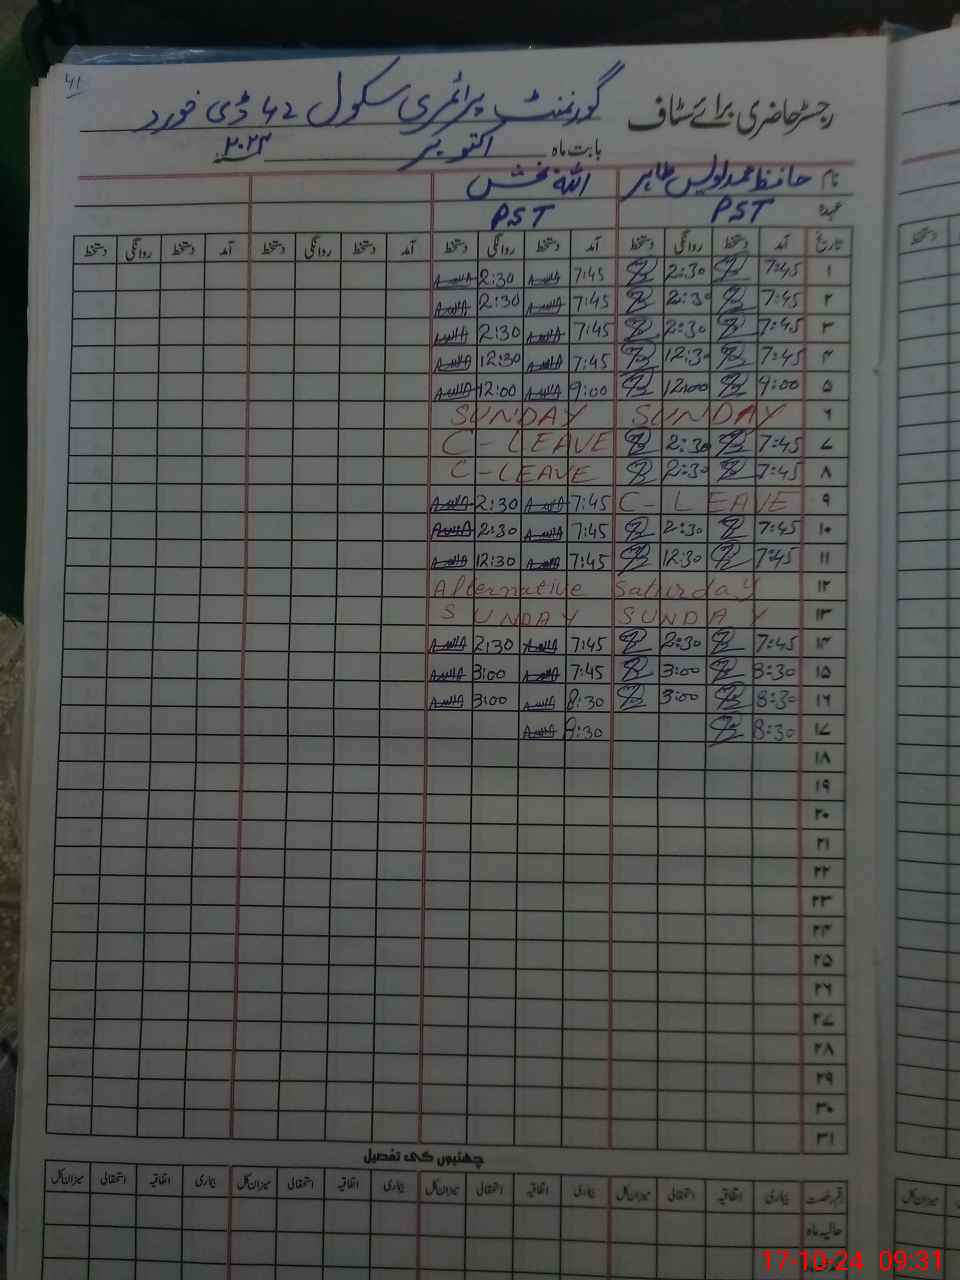 41
رجسٹر حاضری برائے سٹاف گورنمنٹ پرائمری سکول 42 ڈی خورد
بابت ماہ اکتوبر ۲۰۲۴
نام حافظ محمد اویس طاہر اللہ بخش
عہدہ PST PST
تاریخ آمد دستخط روانگی دستخط آمد دستخط روانگی دستخط آمد دستخط روانگی دستخط آمد دستخط روانگی دستخط
۱ 7:45 2:30 7:45 2:30
۲ 7:45 2:30 7:45 2:30
۳ 7:45 2:30 7:45 2:30
۴ 7:45 12:30 7:45 12:30
۵ 9:00 12:00 9:00 12:00
۶ SUNDAY SUNDAY
۷ 7:45 2:30 C-LEAVE
۸ 7:45 2:30 C-LEAVE
۹ C-LEAVE 7:45 2:30
۱۰ 7:45 2:30 7:45 2:30
۱۱ 7:45 12:30 7:45 12:30
۱۲ Alternative Saturday
۱۳ SUNDAY SUNDAY
۱۴ 7:45 2:30 7:45 2:30
۱۵ 8:30 3:00 7:45 3:00
۱۶ 8:30 3:00 8:30 3:00
۱۷ 8:30 8:30
۱۸
۱۹
۲۰
۲۱
۲۲
۲۳
۲۴
۲۵
۲۶
۲۷
۲۸
۲۹
۳۰
۳۱
چھٹیوں کی تفصیل
قسم رخصت بیماری اتفاقیہ استحقاقی میزان کل بیماری اتفاقیہ استحقاقی میزان کل بیماری اتفاقیہ استحقاقی میزان کل بیماری اتفاقیہ استحقاقی میزان کل
حالیہ ماہ
17-10-24 09:31